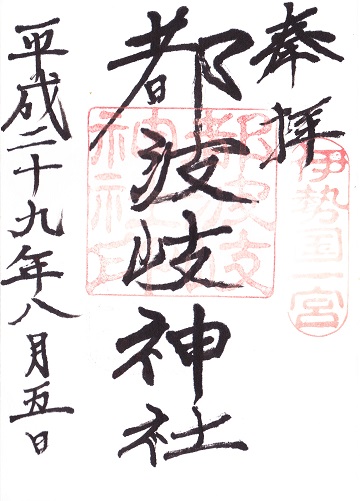 奉拝
伊勢国一宮
都波岐神社
都波岐
神社印
平成二十九年八月五日